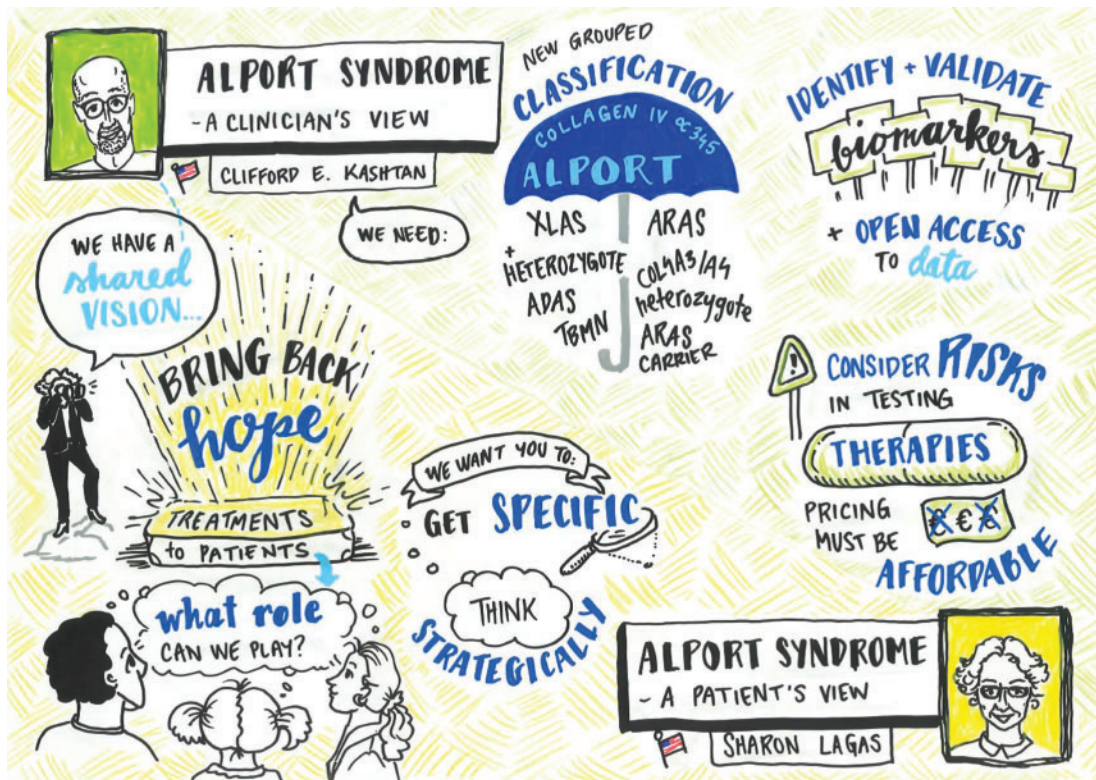 ALPORT SYNDROME
- A CLINICIAN'S VIEW
CLIFFORD E. KASHTAN
WE NEED:
NEW GROUPED
CLASSIFICATION
COLLAGEN IV ∝345
ALPORT
XLAS
+
HETEROZYGOTE
ADAS
TBMN
ARAS
COL4A3/A4
heterozygote
ARAS
CARRIER
IDENTIFY + VALIDATE
biomarkers
+ OPEN ACCESS
TO data
WE HAVE A
shared
VISION...
BRING BACK
hope
TREATMENTS
to PATIENTS
what role
CAN WE PLAY?
WE WANT YOU TO:
GET SPECIFIC
THINK
STRATEGICALLY
!
CONSIDER RISKS
IN TESTING
THERAPIES
PRICING
MUST BE
€ € €
AFFORDABLE
ALPORT SYNDROME
- A PATIENT'S VIEW
SHARON LAGAS